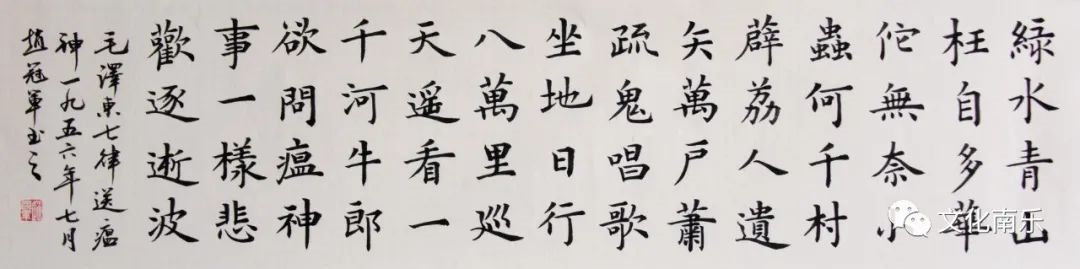 綠水青山
枉自多華
佗無奈小
蟲何千村
薜荔人遺
矢萬戶蕭
疏鬼唱歌
坐地日行
八萬里巡
天遥看一
千河牛郎
欲問瘟神
事一樣悲
歡逐逝波
毛澤东七律送瘟
神一九五六年七月
趙冠軍书之
文化南乐